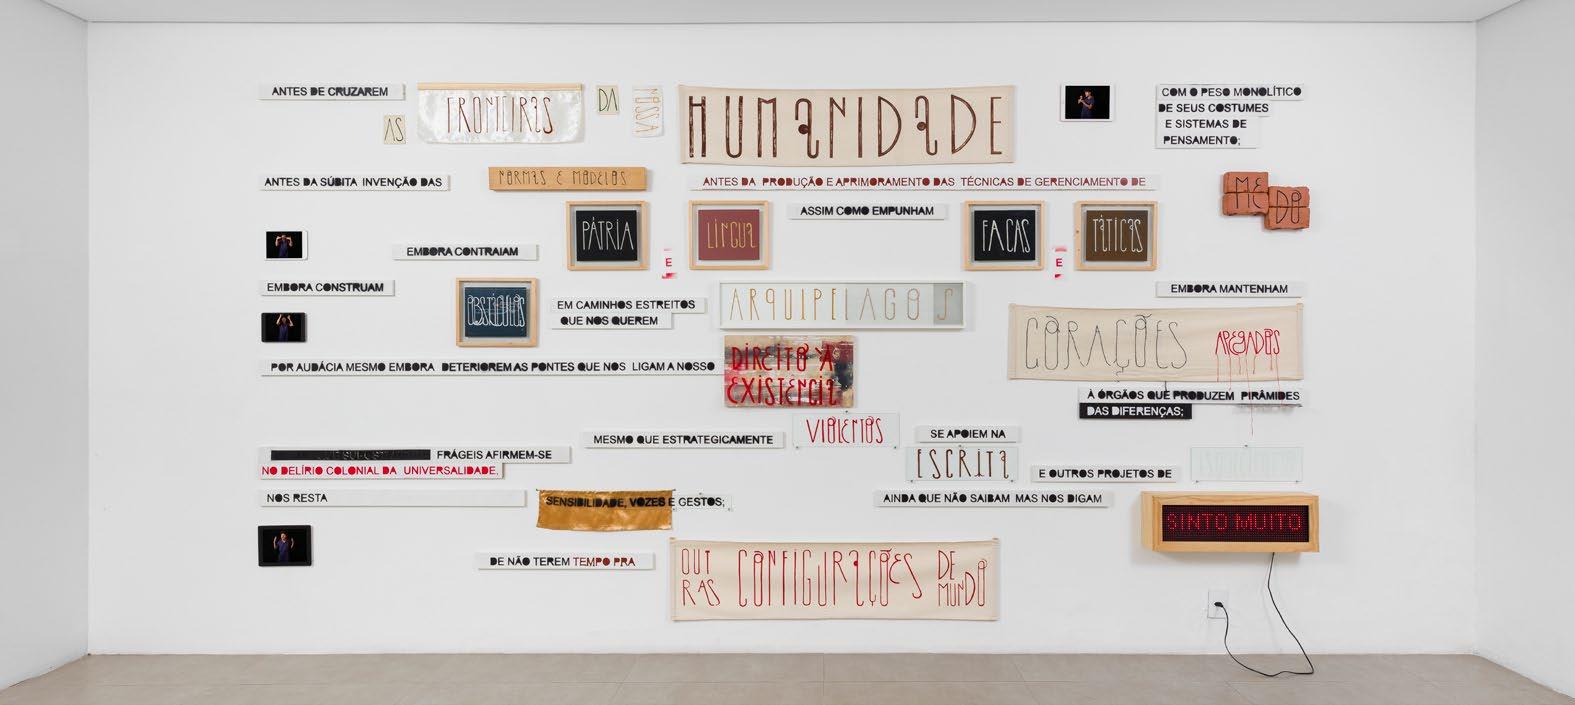 ANTES DE CRUZAREM AS FRONTEIRAS DA NOSSA HUMANIDADE
COM O PESO MONOLÍTICO
DE SEUS COSTUMES
E SISTEMAS DE
PENSAMENTO;
ANTES DA SÚBITA INVENÇÃO DAS NORMAS E MODELOS
ANTES DA PRODUÇÃO E APRIMORAMENTO DAS TÉCNICAS DE GERENCIAMENTO DE
ME
DO
EMBORA CONTRAIAM PÁTRIA E LÍNGUA
ASSIM COMO EMPUNHAM FACAS E TÁTICAS
EMBORA CONSTRUAM OBSTÁCULOS
EM CAMINHOS ESTREITOS
QUE NOS QUEREM
ARQUIPELAGOS
EMBORA MANTENHAM
CORAÇÕES APEGADOS
À ÓRGÃOS QUE PRODUZEM PIRÂMIDES
DAS DIFERENÇAS;
POR AUDÁCIA MESMO EMBORA DETERIOREM AS PONTES QUE NOS LIGAM A NOSSO
DIREITO À
EXISTENCIA
MESMO QUE ESTRATEGICAMENTE VIOLENTOS
SE APOIEM NA
ESCRITA
E OUTROS PROJETOS DE
FRÁGEIS AFIRMEM-SE
NO DELÍRIO COLONIAL DA UNIVERSALIDADE,
NOS RESTA
SENSIBILIDADE, VOZES E GESTOS;
AINDA QUE NÃO SAIBAM MAS NOS DIGAM
SINTO MUITO
DE NÃO TEREM TEMPO PRA
OUT
RAS
CONFIGURAÇÕES
DE
MUNDO